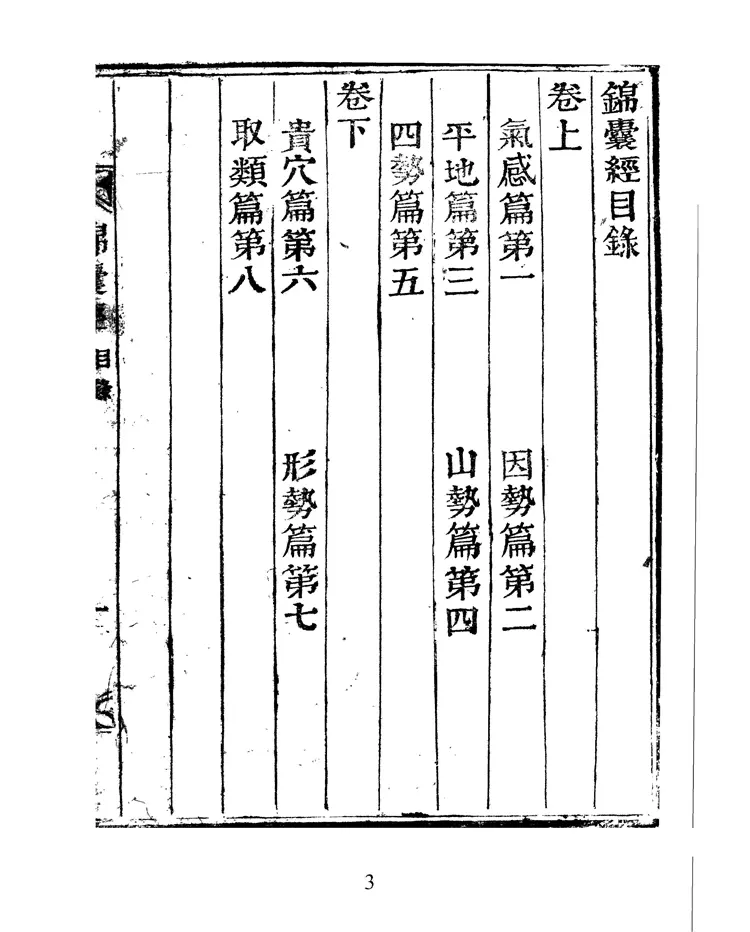 錦囊經目錄
卷上
氣感篇第一 因勢篇第二
平地篇第三 山勢篇第四
四勢篇第五
卷下
貴穴篇第六 形勢篇第七
取類篇第八
錦囊經 目錄 一
3